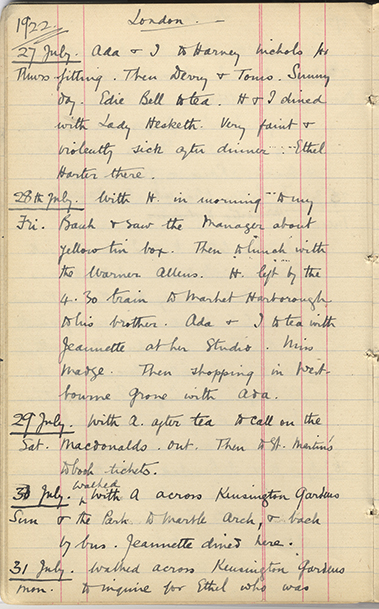 1922. London.
27 July. Ada & I to Harvey Nichols for
Thurs fitting. Then Derry & Toms. Sunny
day. Edie Bell to tea. H & I dined
with Lady Hesketh. Very faint &
violently sick after dinner. Ethel
Harter there.
28th July. With H. in morning to my
Fri. Bank & saw the Manager about
yellow tin box. Then to lunch with
the Warner Allens. H. left by the
4.30 train to Market Harborough
to his brother. Ada & I to tea with
Jeannette at her Studio. Miss
Madge. Then shopping in West-
bourne Grove with Ada.
29 July. With A. after tea to call on the
Sat. Macdonalds. Out. Then to St. Martin's
to book tickets.
30 July. Walked with A across Kensington Gardens
Sun & the Park to Marble Arch, & back
by bus. Jeannette dined here.
31 July. Walked across Kensington Gardens
Mon. to inquire for Ethel who was